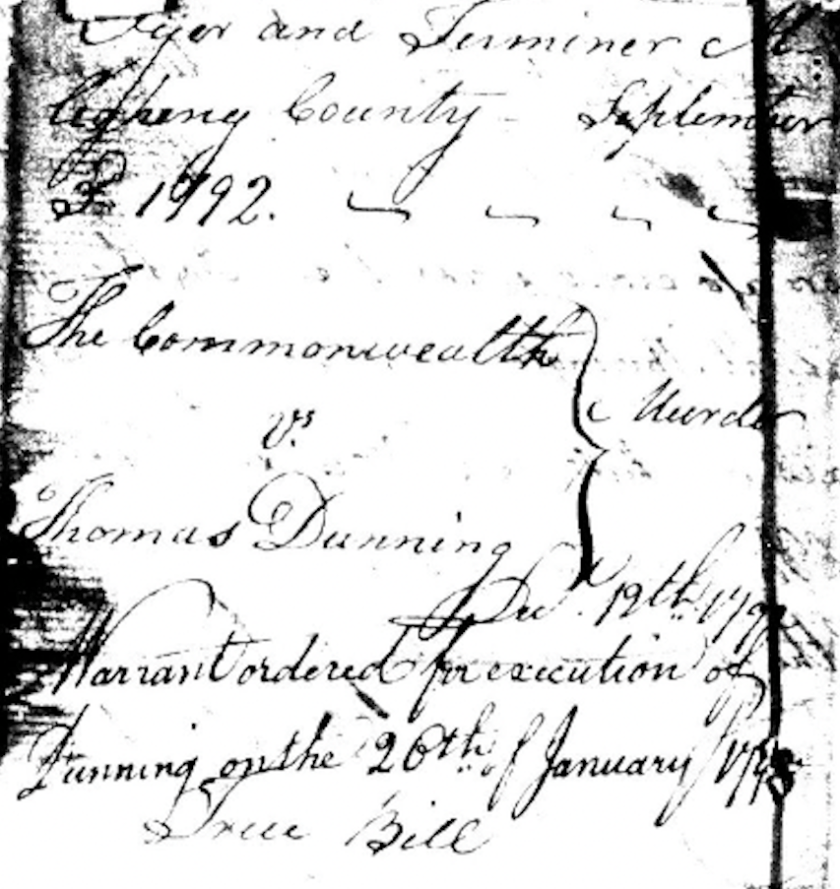 Oyer and Terminer Al
legheny County - September
T 1792.
The Commonwealth
vs
Murder
Thomas Dunning
Decr. 12th. 1792
Warrant ordered for execution of
Dunning on the 26th. of January 1793
True Bill